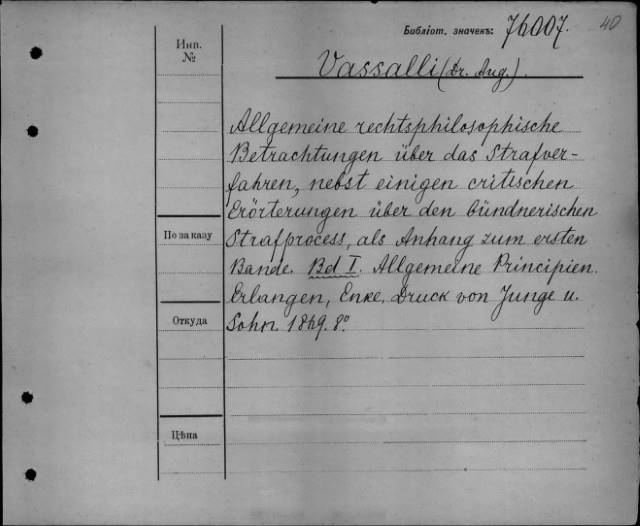 Библіот. значекъ: 76007. 40
Инв. №
Vassalli (Dr. Aug.).
Allgemeine rechtsphilosophische
Betrachtungen über das Strafver-
fahren, nebst einigen critischen
Erörterungen über den bündnerischen
По заказу
Strafprocess, als Anhang zum ersten
Bande. Bd I. Allgemeine Principien.
Erlangen, Enke, Druck von Junge u.
Откуда
Sohn. 1869. 8°
Цѣна